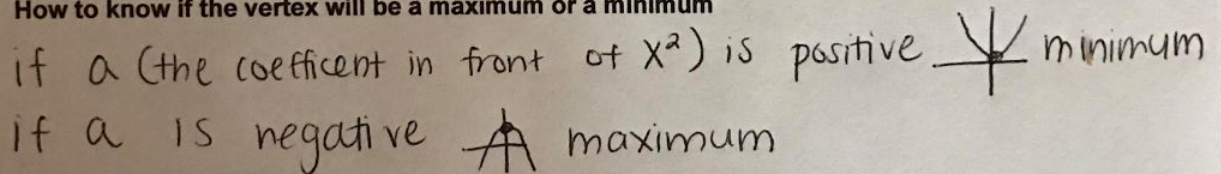 How to know if the vertex will be a maximum or a minimum
if a (the coefficent in front of x²) is positive minimum
if a is negative maximum